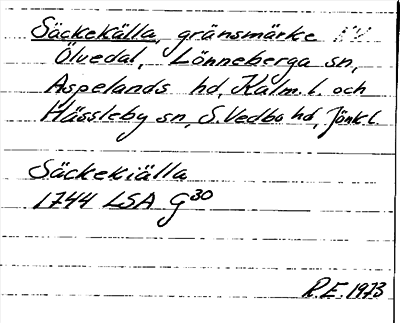 Säckekälla, gränsmärke
Ölvedal, Lönneberga sn,
Aspelands hd, Kalm. l. och
Hässleby sn, S. Vedbo hd, Jönk l.
Säckekiälla
1744 LSA G30
R.E. 1973